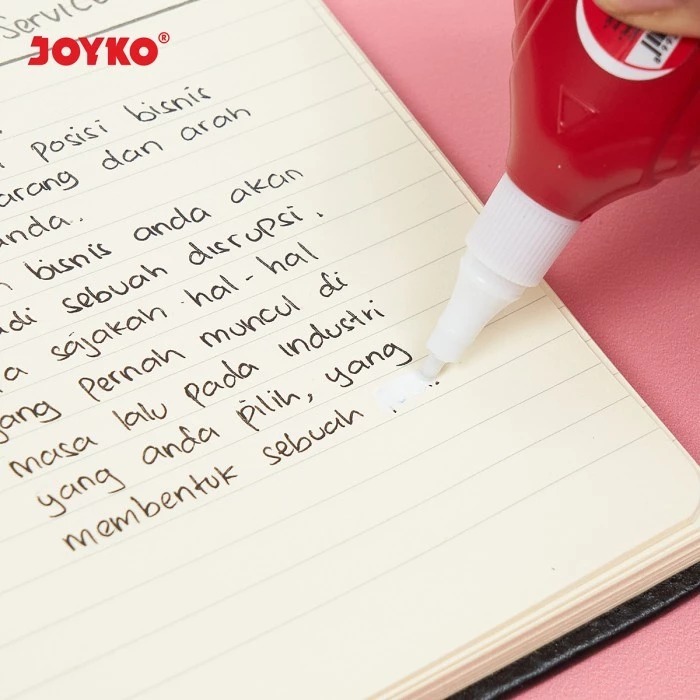 Service
JOYKO®
posisi bisnis
arang dan arah
anda.
bisnis anda akan
adi sebuah disrupsi.
a sajakah hal-hal
yang pernah muncul di
masa lalu pada industri
yang anda pilih, yang
membentuk sebuah